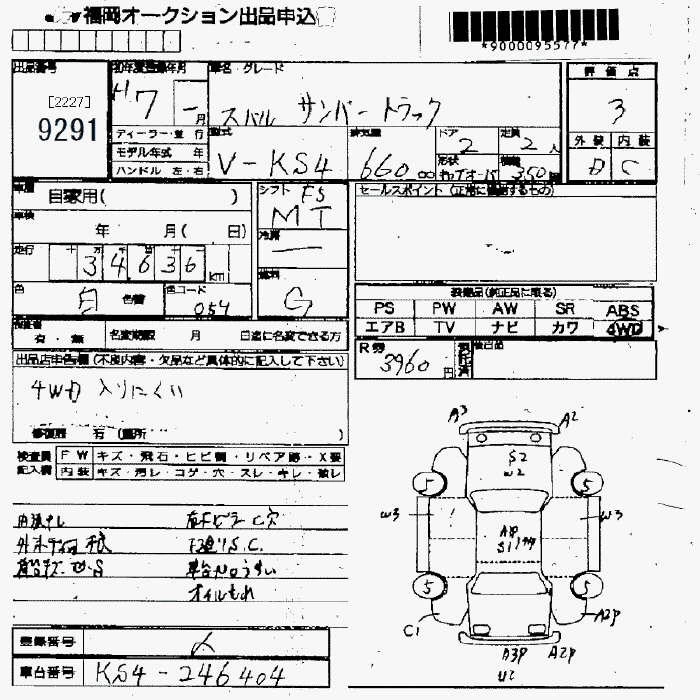 福岡オークション出品申込
*9000095577*
出品番号
[2227]
9291
初年度登録年月
H7 - 月
車名・グレード
スバル サンバートラック
評価点
3
外装 内装
D C
ディーラー・並行
モデル年式 年
ハンドル 左・右
型式
V-KS4
排気量
660 cc
ドア
2
定員
2 人
形状
キャブオーバ
積載
350 kg
車歴
自家用( )
車検
年 月( 日)
走行
34636 km
色
白 色替
色コード
054
シフト
F5
MT
冷房
―
燃料
G
セールスポイント (正常に機能するもの)
装備品(純正品に限る)
PS PW AW SR ABS
エアB TV ナビ カワ 4WD
有・無 名変期限 月 日迄に名変できる方
R券
3960 円
出品店申告欄 (不良内容・欠品など具体的に記入して下さい)
4WD 入りにくい
修復歴 有 (箇所 )
検査員 FW キズ・飛石・ヒビ割・リペア跡・X要
記入欄 内装 キズ・汚レ・コゲ・穴・スレ・キレ・破レ
下廻りS.C.
オイルもれ
登録番号
車台番号 KS4-246404
A3 A2
S2
W2
5 5
W3 W3
5 5
C1 A2P
A3P A2P
U2